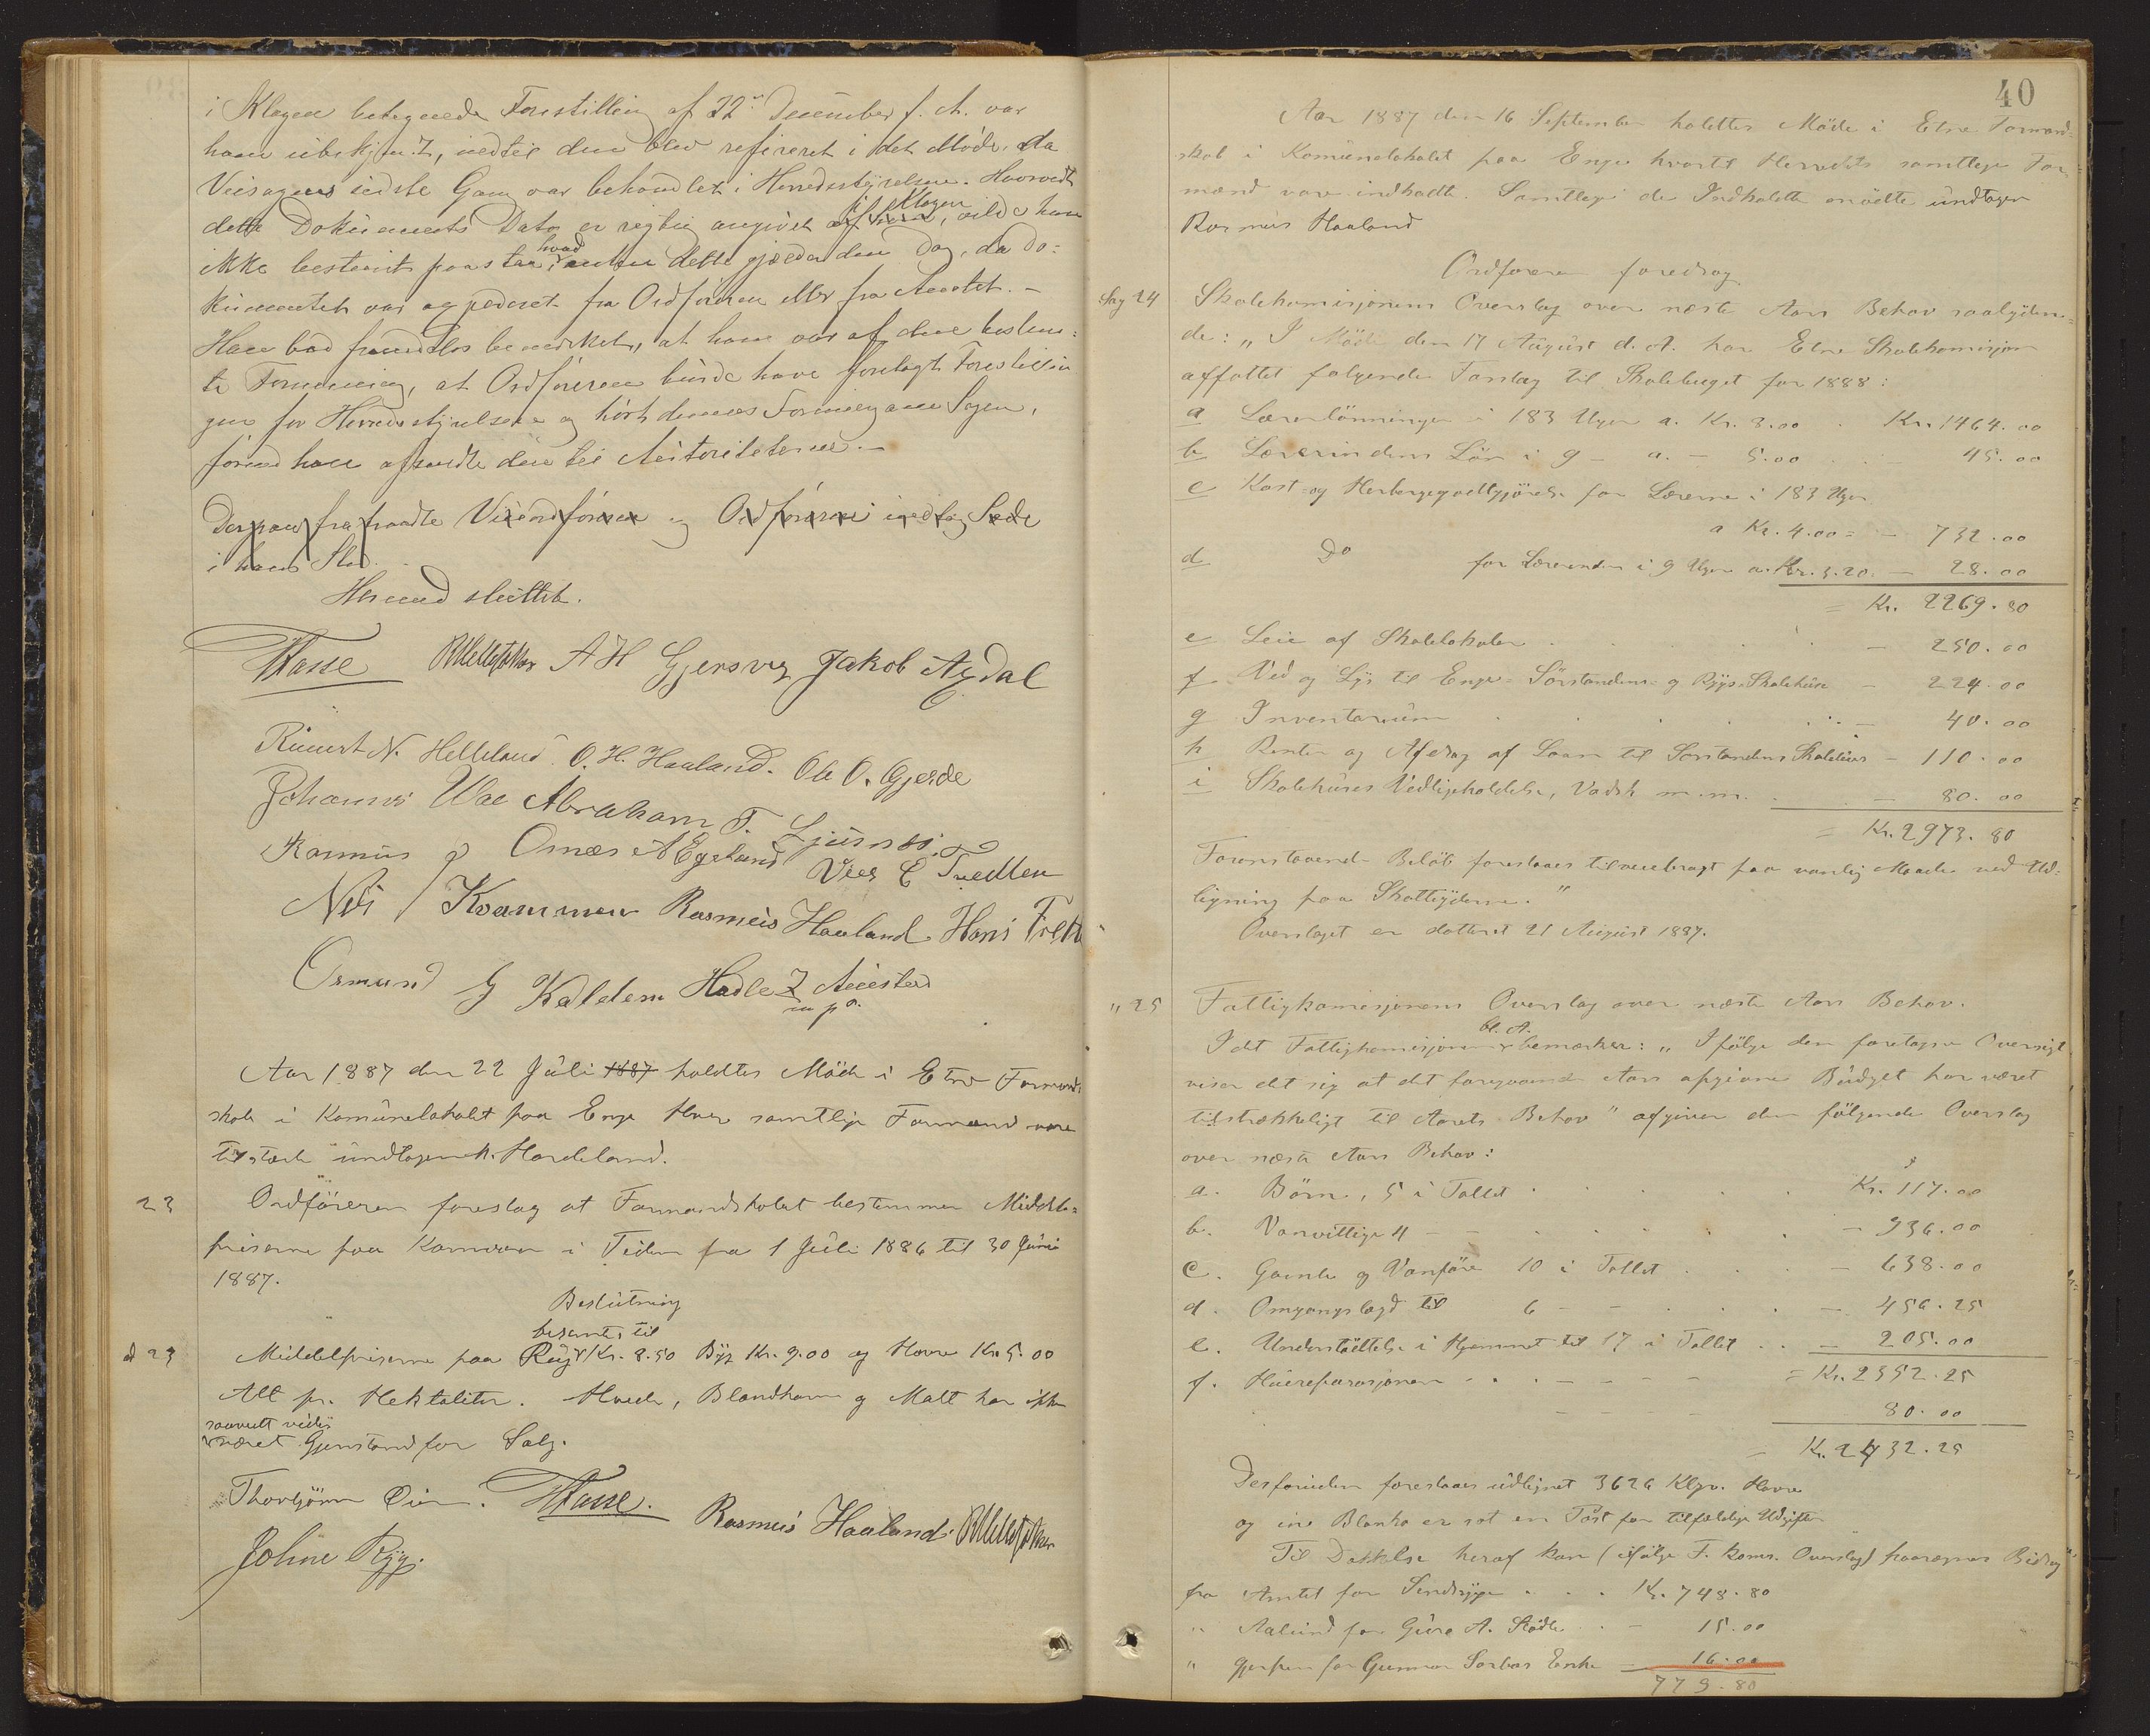 i Klagen betegnede Forestilling af 22de December f. A. var
ham ubekjendt, indtil den blev refereret i det Møde, da
Veisagens sidste Gang var behandlet i Herredsstyrelsen. Hvorvidt
dette Dokuments Dato er rigtig angivet i Klagen, vilde han
ikke bestemt paastaa, hvad enten dette gjælder den Dag, da Do-
kumentet var expederet fra Ordføreren eller fra Amtet.-
Han bad bemerket, at han var af den bestem-
te Formening, at Ordføreren burde have forelagt Forestillin
gen for Herredsstyrelsen og hørt dennes Formening om Sagen,
førend han afsendte den til Autoriteterne.-
Derpaa fratraadte Viceordføreren og Ordføreren indtog Sæde
i hans Sted.
Hermed sluttet.
A H Gjersvig Jakob Aydal
Rimert N. Helleland O. H. Haaland. Ole O. Gjerde
Johannes Abraham T.
Rasmus Omæs A Egeland Tvedten
Nils Kvammen Rasmus Haaland Hans
Osmund G Kaldem Hadle Austad
m p.
Aar 1887 den 22 Juli 1887 holdtes Møde i Etne Formand-
skab i Komunelokalet paa Enge Hvor samtlige Formænd vare
tilstede undtagen K. Hardeland.
23 Ordføreren foreslog at Formandskabet bestemmer Middel-
priserne paa Kornvarer i Tiden fra 1 Juli 1886 til 30 Juni
1887.
Beslutning
bestemtes til
d 23 Middelpriserne paa Rug Kr. 8.50 Byg Kr. 9.00 og Havre Kr. 5.00
Alt pr. Hektoliter. Hvede, Blandkorn og Malt har ikke
saavidt vides
været Gjenstand for Salg.
Thorbjørn Rasmus Haaland.
Johne Ryg.
40
Aar 1887 den 16 September holdtes Møde i Etne Formand-
skab i Komunelokalet paa Enge hvortil Herredets samtlige For-
mænd vare indkaldte. Samtlige de Indkaldte mødte undtagen
Rasmus Haaland
Ordføreren foredrog
Sag 24 Skolekomisjonens Overslag over næste Aars Behov saalyden-
de: „I Møde den 17 August d. A. har Etne Skolekomisjon
affattet følgende Forslag til Skolebuget for 1888:
a Lærerlønninger i 183 Uger a. Kr. 8.00 . Kr. 1464.00
b Lærerindens Løn i 9 - a. - 5.00 . - 45.00
c Kost- og Herbergegodtgjørelse for Lærerne i 183 Uger
a Kr. 4.00 = - 732.00
d Do for Lærerinden i 9 Uger a. Kr. 3.20. - 28.00
= Kr. 2269.80
e Leie af Skolelokaler - 250.00
f. Ved og Lys til Enge- Sørstandens- og Rygs Skolehuse - 224.00
g Inventarium - 40.00
h Renter og Afdrag af Laan til Sørstandens Skolehus - 110.00
i Skolehuses Vedligeholdelse, Vadsk m.m. - 80.00
= Kr. 2973.80
Foranstaaende Beløb foreslaaes tilveiebragt paa vanlig Maade ved Ud-
ligning paa Skatteyderne."
Overslaget er dateret 21 August 1887.
„ 25 Fattigkomisjonens Overslag over næste Aars Behov.
Idet Fattigkomisjonen bl. A. bemærker: „Ifølge den foretagne Oversigt
viser det sig at det foregaaende Aars opgivne Budget har været
tilstrækkeligt til Aarets Behov" afgiver den følgende Overslag
over næste Aars Behov:
a. Børn, 5 i Tallet Kr. 117.00
b. Vanvittige 4 - - - 936.00
c. Gamle og Vanføre 10 i Tallet - 638.00
d. Omgangslagd til 6 - - - 456.25
e. Understøttelse i Hjemmet til 17 i Tallet - 205.00
= Kr. 2352.25
f. Husreparasjoner 80.00
= Kr. 2432.25
Desforuden foreslaaes udlignet 3626 Klgr. Havre
og in Blanko er sat en Post for tilfældige Udgifter
Til Dækkelse heraf kan (ifølge F. koms. Overslag) paaregnes Bidrag
fra Amtet for Sindsyge . . . Kr. 748.80
„ Aalund for Guro A. Stødle . . - 15.00
„ Gjerpen for Gunnar Sørbøs Enke - 16.00
779.80